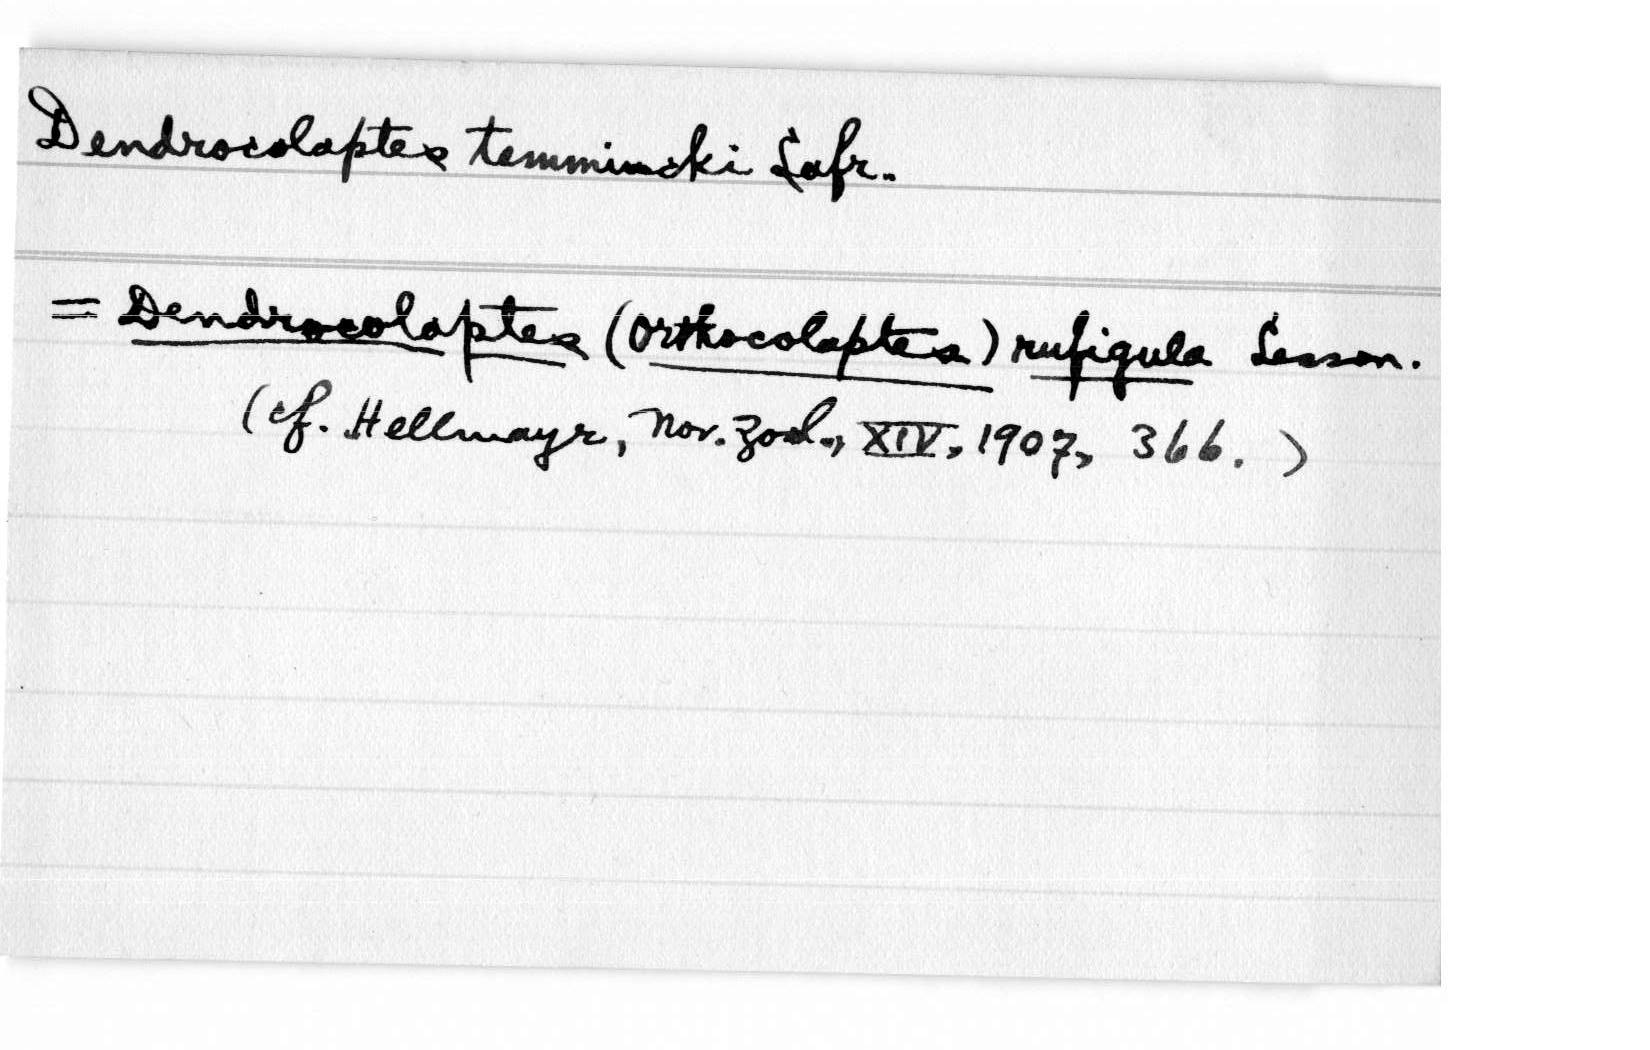 Dendrocolaptes temmincki Lafr.
= Dendrocolaptes (Orthocolaptes) rufigula Lesson.
(cf. Hellmayr, Nov. Zool., XIV, 1907, 366.)